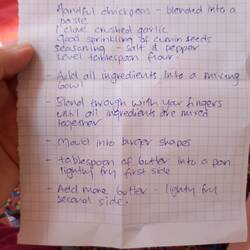 - Handful chickpeas - blended into a
paste
1 clove crushed garlic
Good sprinkling of cumin seeds
seasoning - salt & pepper
Level tablespoon flour
- Add all ingredients into a mixing
bowl
- Blend through with your fingers
until all ingredients are mixed
together
- Mould into burger shapes
- tablespoon of butter into a pan
lightly fry first side
- Add more butter - lightly fry
second side.